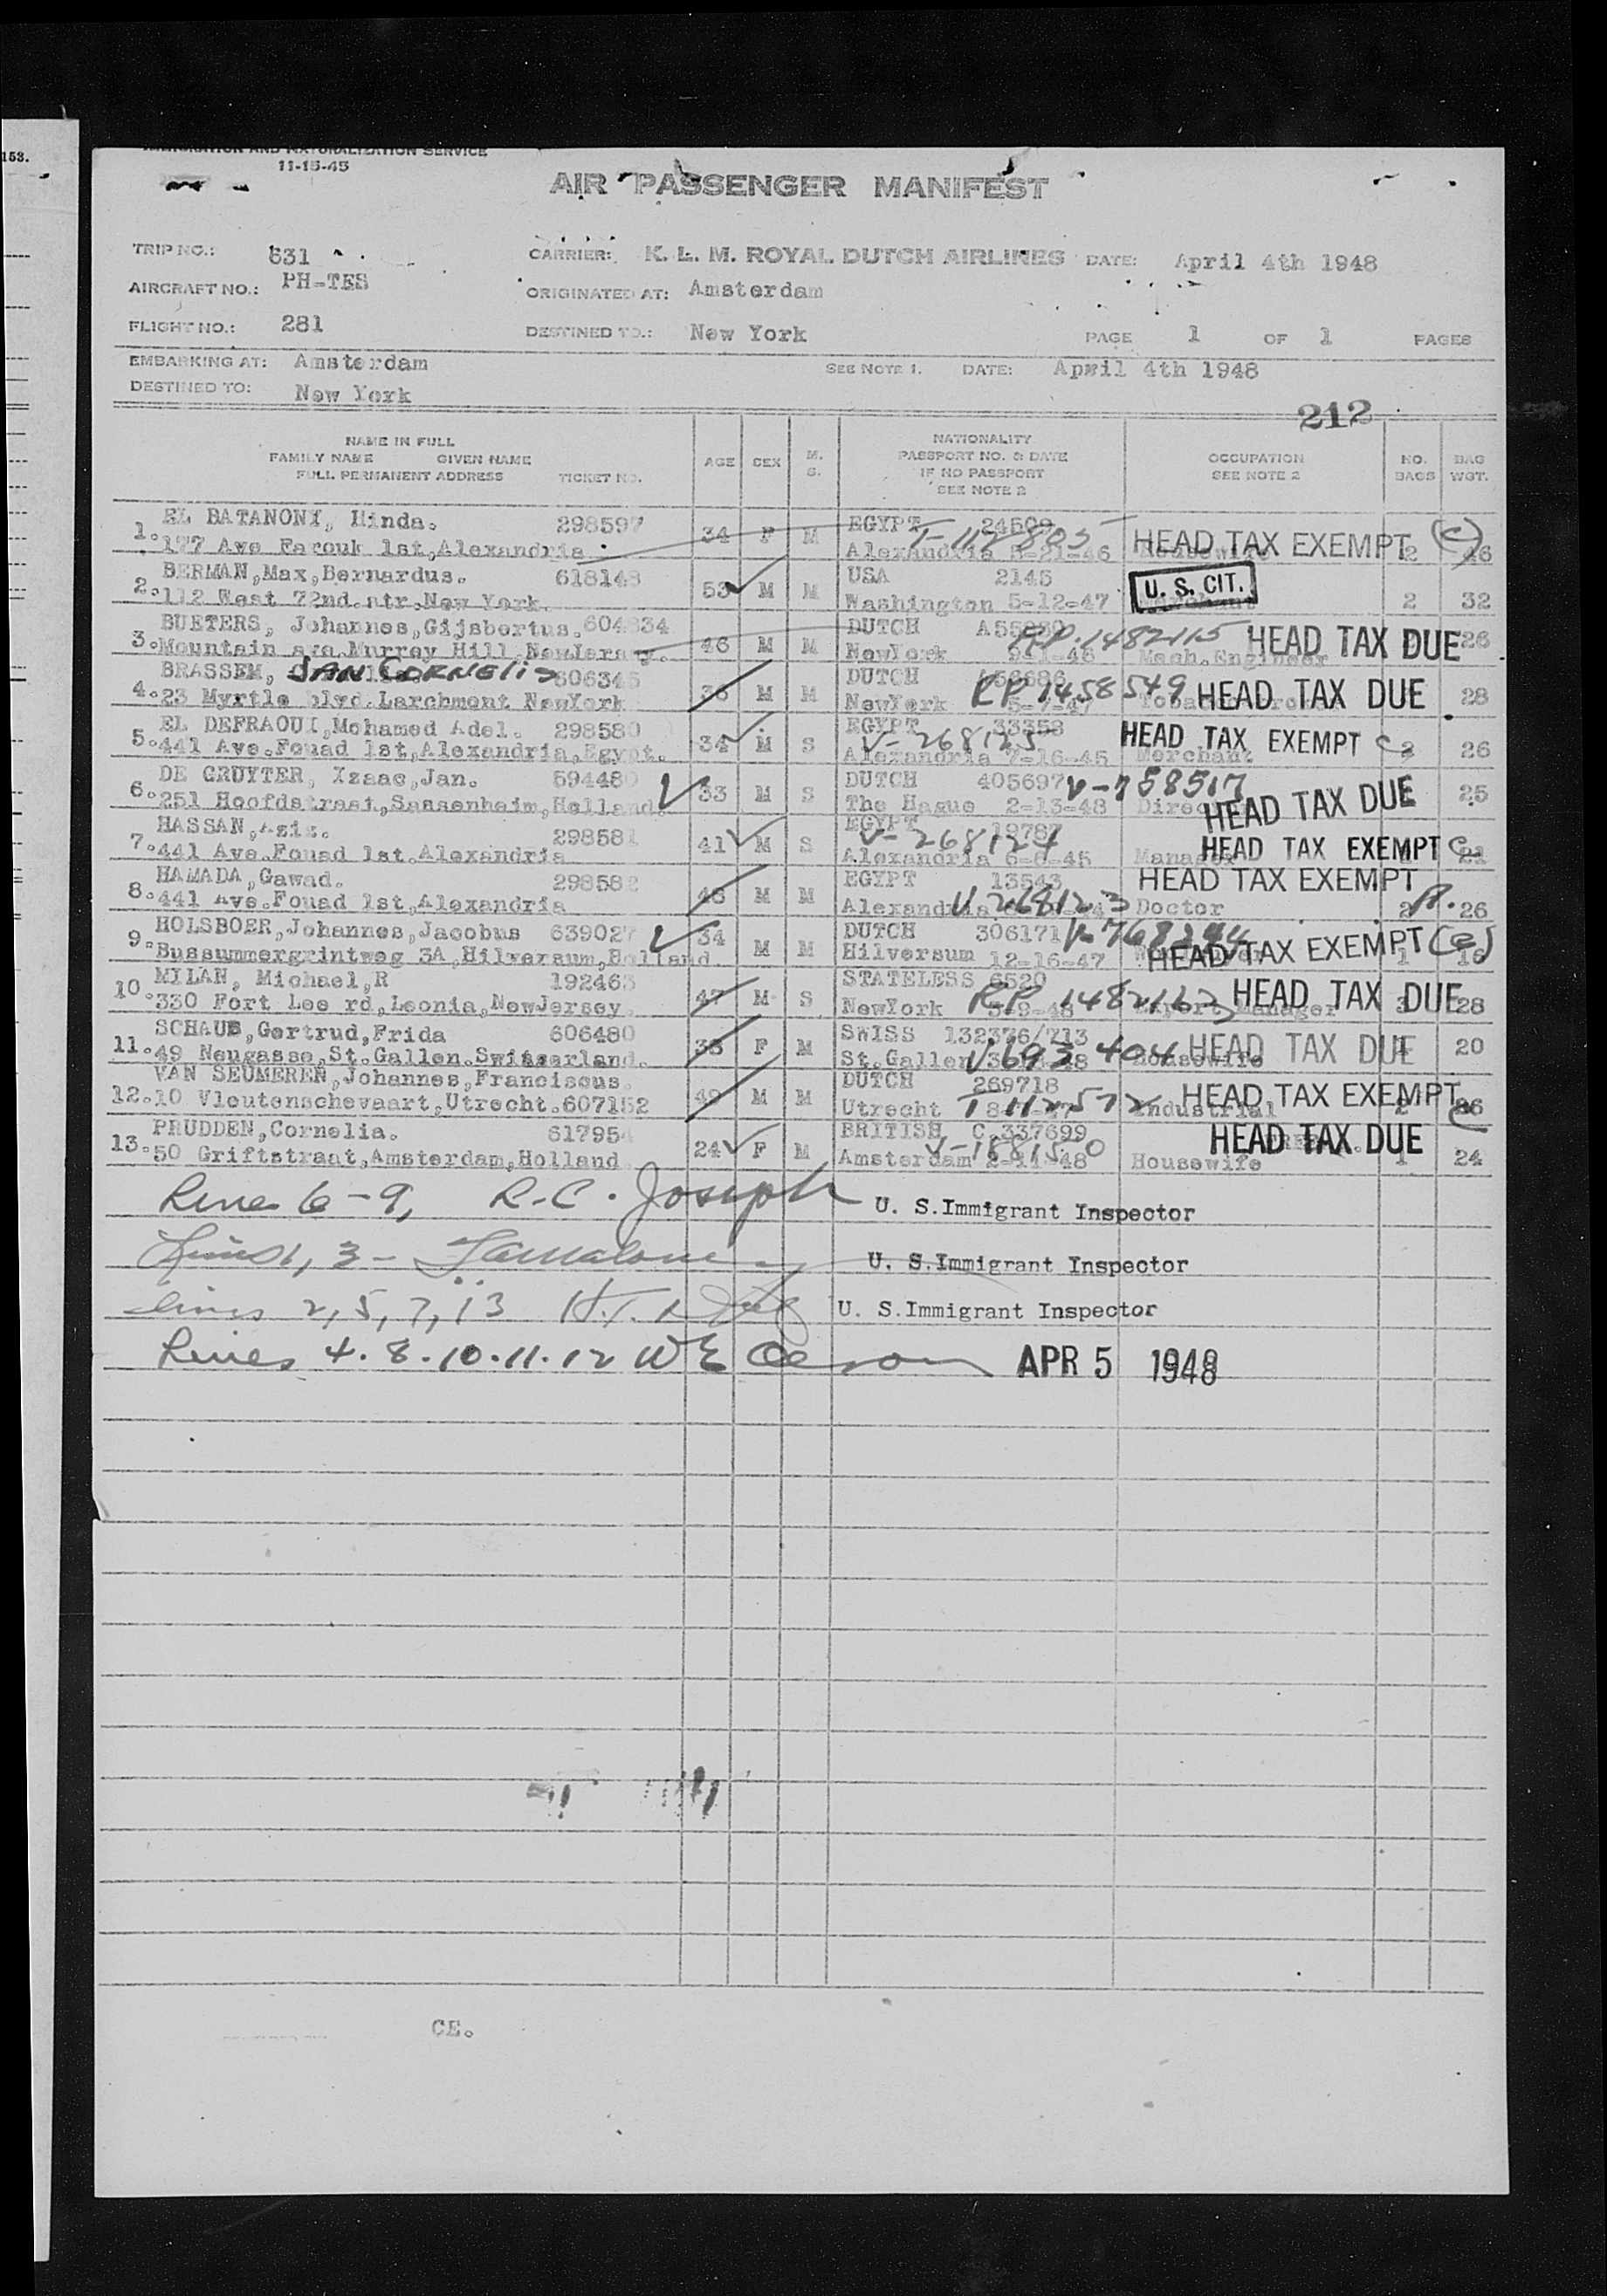 153.
IMMIGRATION AND NATURALIZATION SERVICE
11-15-45
AIR PASSENGER MANIFEST
TRIP NO.: 531 CARRIER: K. L. M. ROYAL DUTCH AIRLINES DATE: April 4th 1948
AIRCRAFT NO.: PH-TES ORIGINATED AT: Amsterdam
FLIGHT NO.: 281 DESTINED TO.: New York PAGE 1 OF 1 PAGES
EMBARKING AT: Amsterdam SEE NOTE 1. DATE: April 4th 1948
DESTINED TO: New York
212
NAME IN FULL
FAMILY NAME GIVEN NAME
FULL PERMANENT ADDRESS TICKET NO. AGE SEX M. S. NATIONALITY PASSPORT NO. & DATE IF NO PASSPORT SEE NOTE 2 OCCUPATION SEE NOTE 2 NO. BAGS BAG WGT.
EL BATANONY, Hinda. 298597 EGYPT 24509
1. 177 Ave Farouk 1st,Alexandria 34 F M Alexandria -21-46 Housewife HEAD TAX EXEMPT (C) 2 46
BERMAN,Max,Bernardus. 618148 USA 2145
2. 112 West 72nd.str.New York. 53 M M Washington 5-12-47 U. S. CIT. 2 32
BUETERS, Johannes,Gijsbertus. 604834 DUTCH RP.1482115
3. Mountain ave.Murray Hill.NewJersey. 46 M M NewYork Mech.Engineer HEAD TAX DUE 26
BRASSEM, JAN CORNELIS 606345 DUTCH RP 1458549
4. 23 Myrtle blvd.Larchmont NewYork M M NewYork HEAD TAX DUE 28
EL DEFRAOUI,Mohamed Adel. 298580 EGYPT 33358 V-268125
5. 441 Ave.Fouad 1st,Alexandria,Egypt. 34 M S Alexandria 7-16-45 Merchant HEAD TAX EXEMPT C 2 26
DE GRUYTER, Izaac,Jan. 594480 DUTCH 405697 V-758517
6. 251 Hoofdstraat,Sassenheim,Holland. 33 M S The Hague 2-13-48 Director HEAD TAX DUE 25
HASSAN,Aziz. 298581 EGYPT 19787 V-268124
7. 441 Ave.Fouad 1st.Alexandria 41 M S Alexandria 6-6-45 Manager HEAD TAX EXEMPT C 21
HAMADA,Gawad. 298582 EGYPT 13543 V 268123 HEAD TAX EXEMPT
8. 441 Ave.Fouad 1st,Alexandria 46 M M Alexandria Doctor 2 26
HOLSBOER,Johannes,Jacobus 639027 DUTCH 306171
9. Bussummergrintweg 3A,Hilversum,Holland 34 M M Hilversum 12-16-47 HEAD TAX EXEMPT (C) 1 16
MILAN, Michael,R 192463 STATELESS 6520
10. 330 Fort Lee rd,Leonia,NewJersey. 47 M S NewYork RP 1482163 Export Manager HEAD TAX DUE 3 28
SCHAUB,Gertrud,Frida 606480 SWISS 132376/713
11. 49 Neugasse,St.Gallen.Switserland. F M St.Gallen V 693404 Housewife HEAD TAX DUE 20
VAN SEUMEREN,Johannes,Franciscus. DUTCH 269718
12. 10 Vleutenschevaart,Utrecht. 607152 49 M M Utrecht T 112572 Industrial HEAD TAX EXEMPT C
PRUDDEN,Cornelia. 617954 BRITISH C.337699
13. 50 Griftstraat,Amsterdam,Holland 24 F M Amsterdam Housewife HEAD TAX DUE 1 24
Lines 6-9, R.C. Joseph U. S.Immigrant Inspector
Lines 1, 3 - U. S.Immigrant Inspector
lines 2, 5, 7, 13 U. S.Immigrant Inspector
Lines 4. 8. 10. 11. 12 WE APR 5 1948
CE.